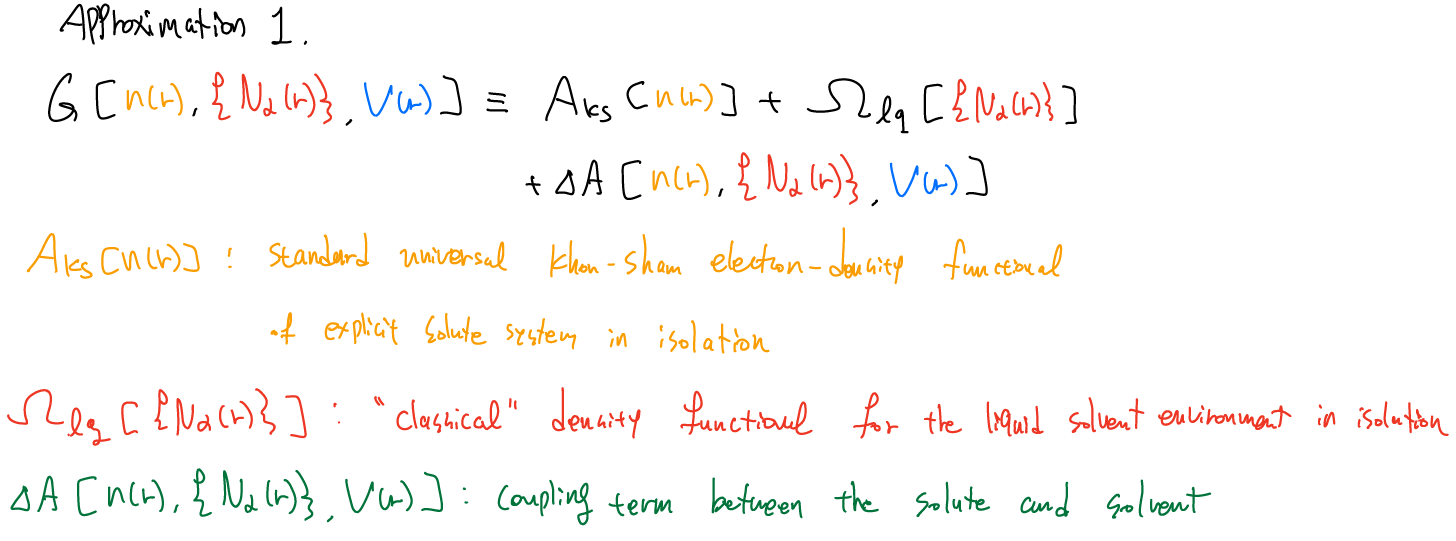 Approximation 1.
G[n(r), {Nα(r)}, V(r)] ≡ A_KS[n(r)] + Ω_lq[{Nα(r)}]
+ ΔA[n(r), {Nα(r)}, V(r)]
A_KS[n(r)] : standard universal Khon-Sham electron-density functional
of explicit solute system in isolation
Ω_lq[{Nα(r)}] : "classical" density functional for the liquid solvent environment in isolation
ΔA[n(r), {Nα(r)}, V(r)] : coupling term between the solute and solvent